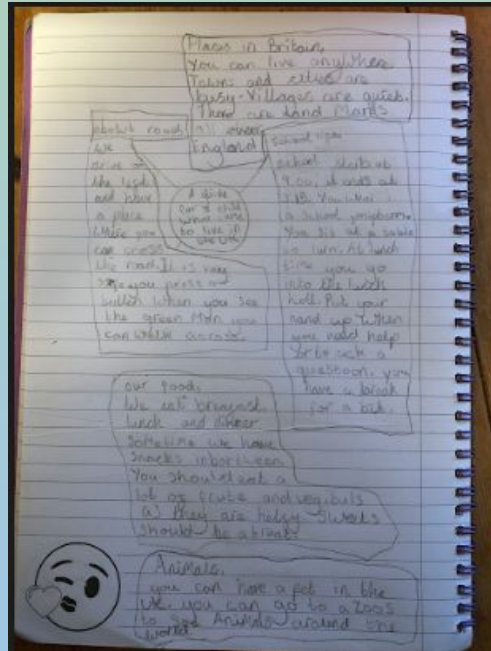 Places in Britain,
You can live anywhere
Towns and cities are
busy. Villages are quiet.
There are Land Marks
all over
England
about road
We
drive on
the left
and have
a place
Where you
can cross
the road. It is very
safe you press a
button When you see
the green Man you
can walk across.
A guide
for a child
to live in
the UK
School
School starts at
9:00, it ends at
You Wear
a School
You sit at a table
to learn. At lunch
time you go
into the lunch
hall. Put your
hand up When
you need help
or to ask a
you
have a break
for a bit.
our food,
We eat
lunch and dinner
Sometime we have
Snacks
You should eat a
lot of
as they are
Sweets
Should be a
Animals,
you can have a pet in the
UK, you can go to a Zoos
to See Animals around the
world.